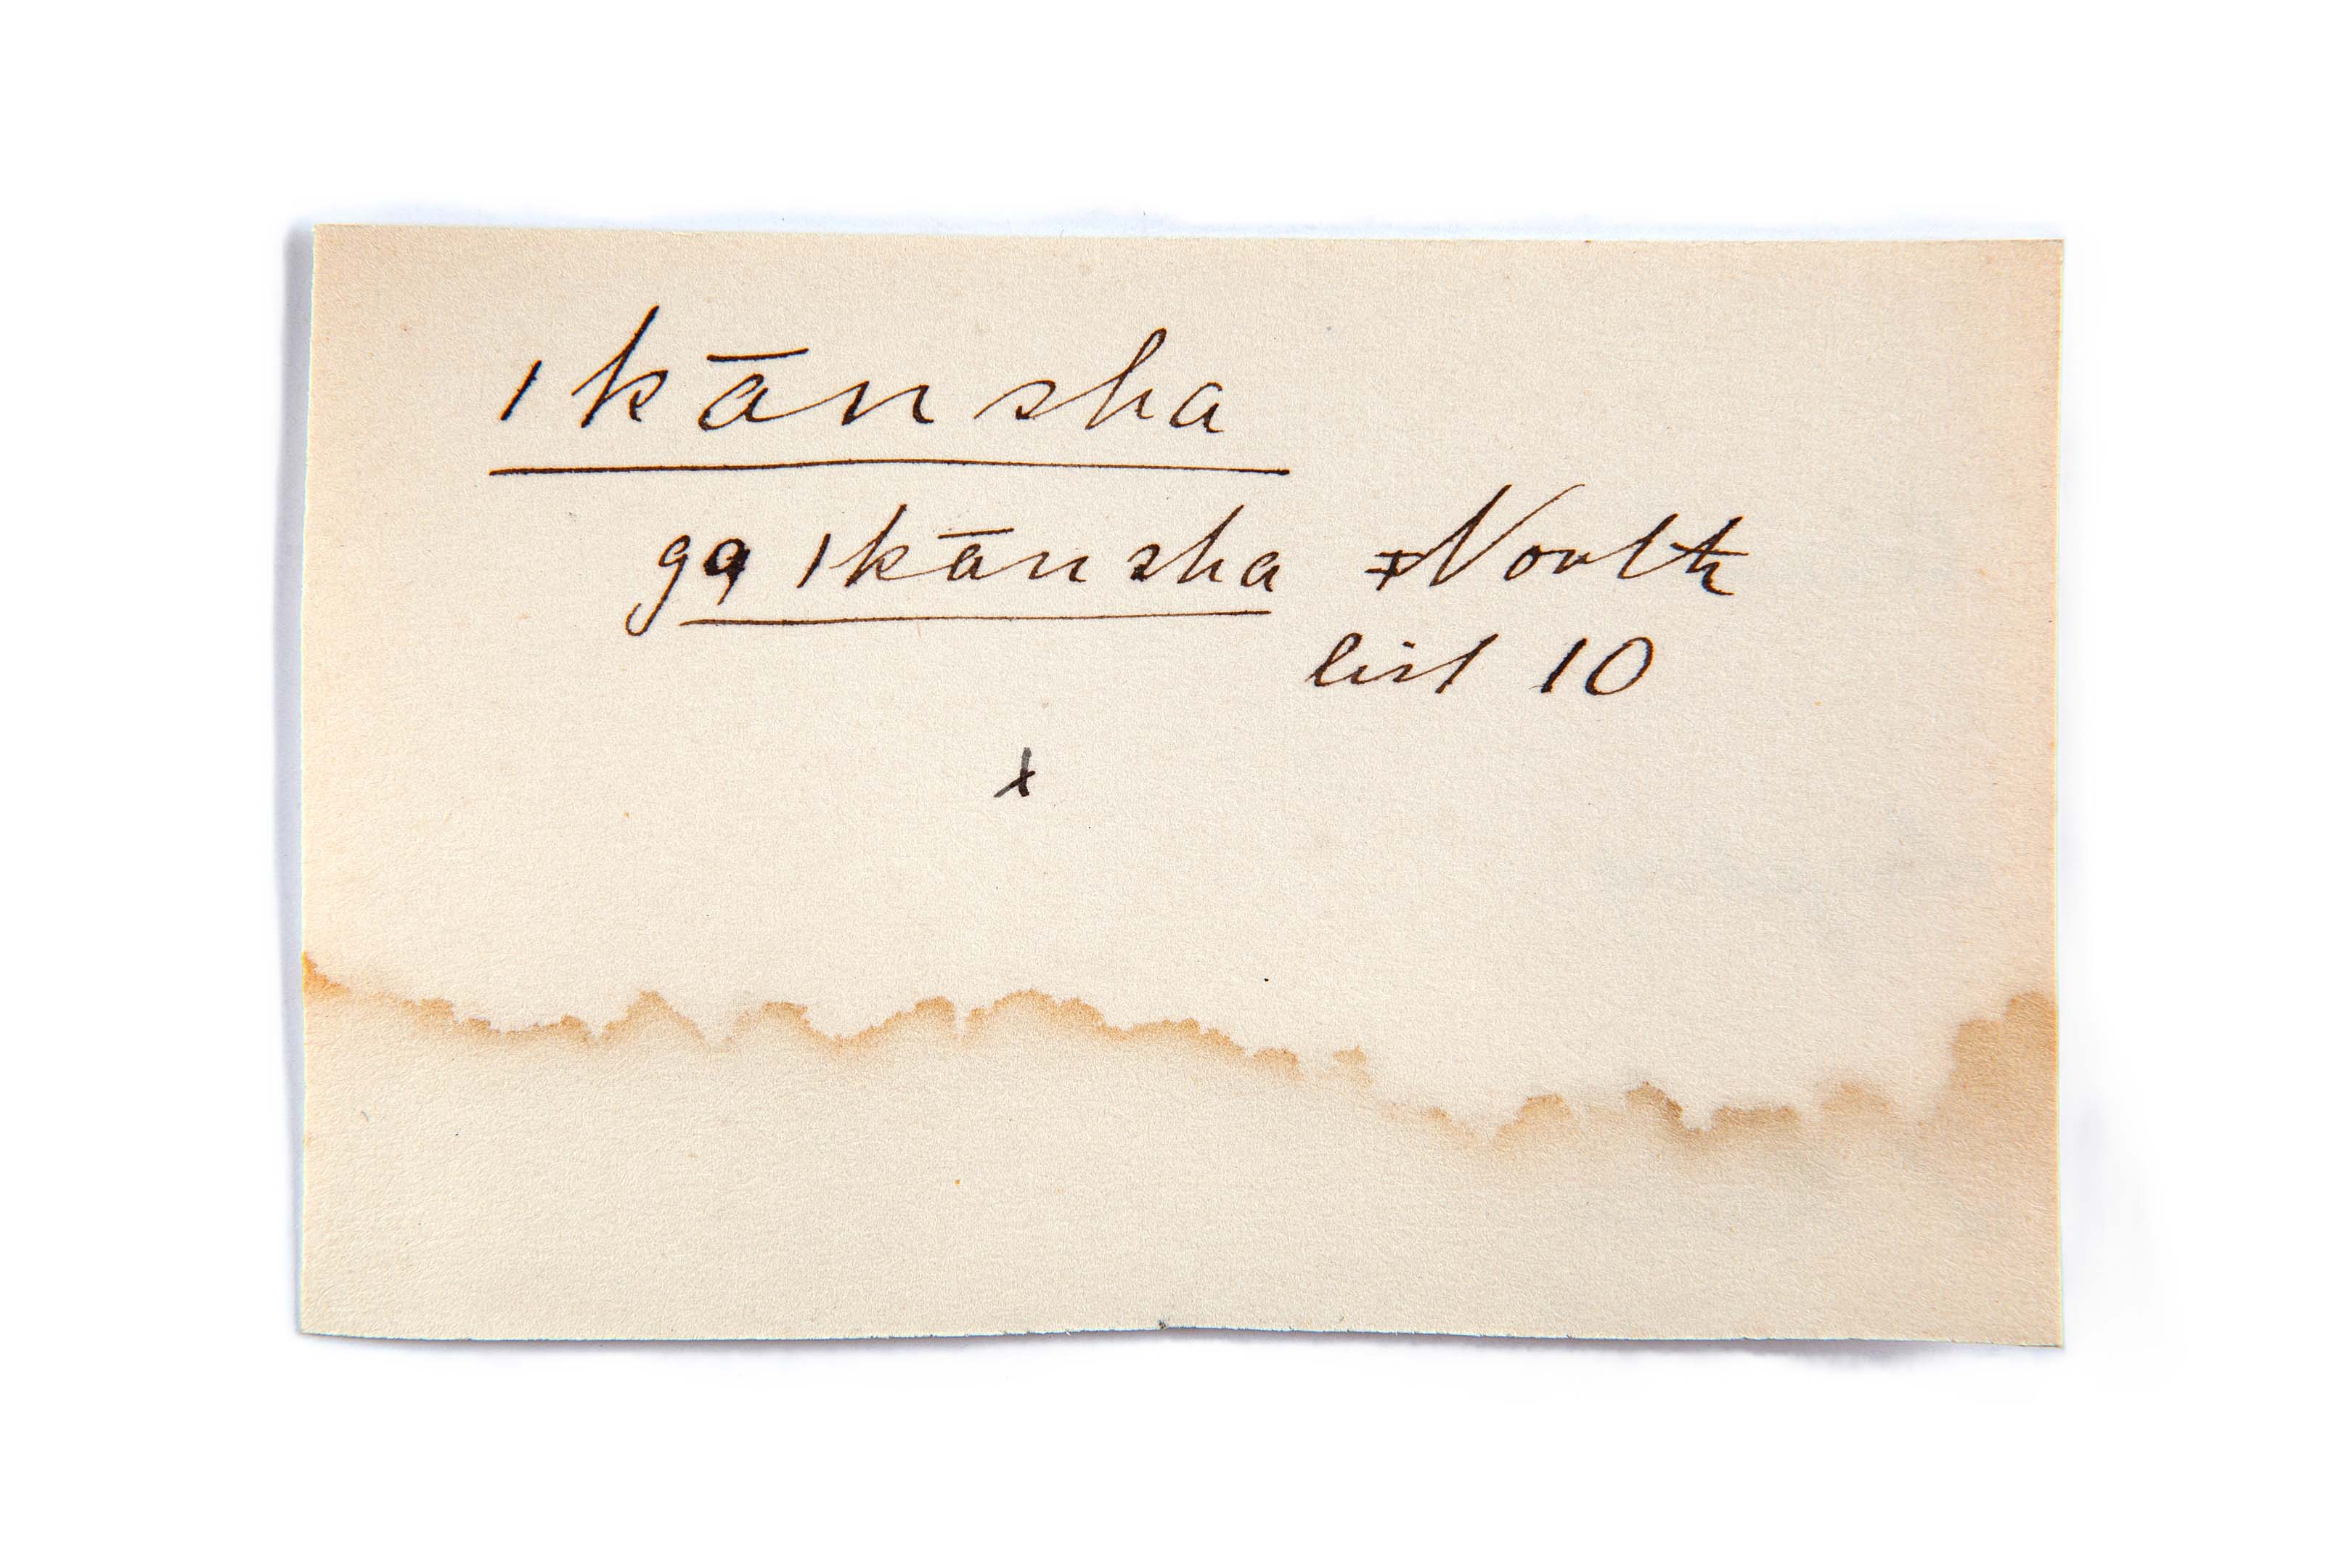 ıkānsha
ga ıkānsha = North
list 10
x